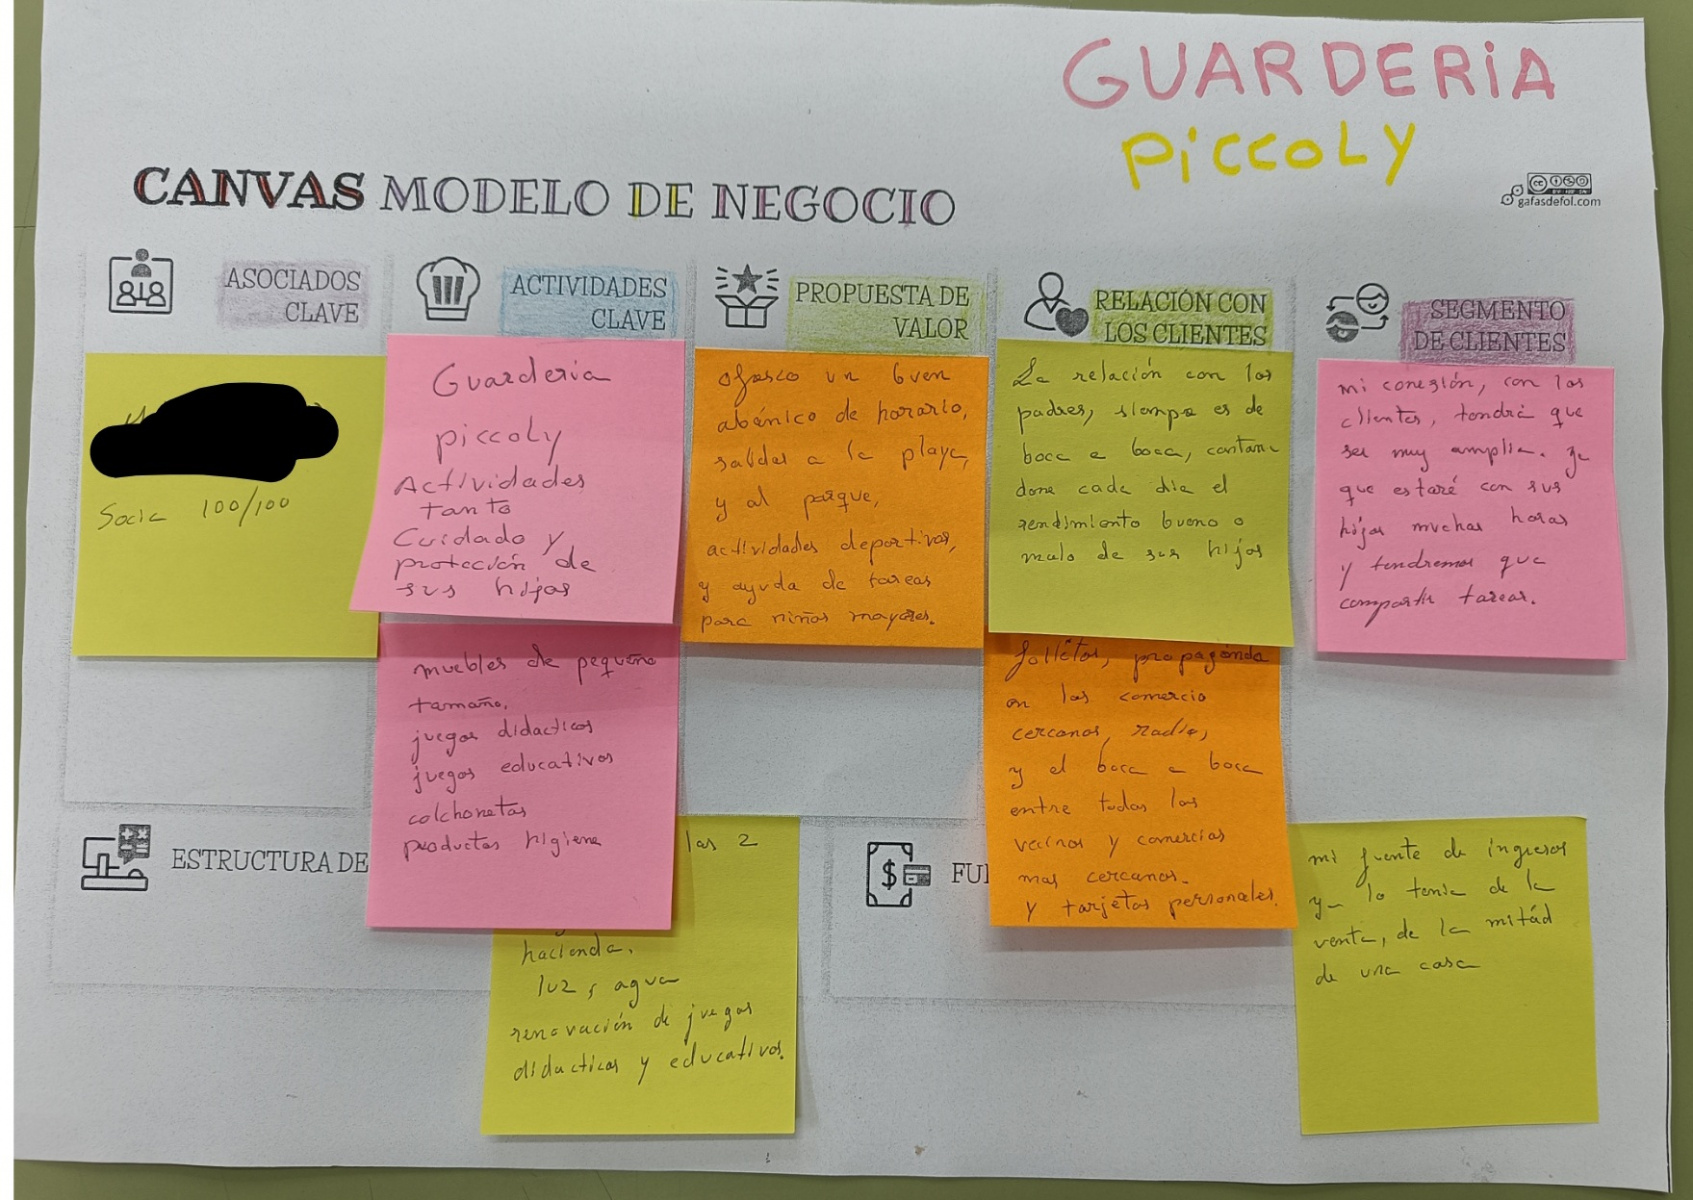 GUARDERiA
PiCCOLY
CANVAS MODELO DE NEGOCIO
gafasdefol.com
ASOCIADOS
CLAVE
Socia 100/100
ACTIVIDADES
CLAVE
Guarderia
piccoly
Actividades
tanto
Cuidado y
protección de
sus hijos
muebles de pequeño
tamaño,
juegos didacticos
juegos educativos
colchonetas
productos higiene
PROPUESTA DE
VALOR
ofresco un buen
abánico de horario,
salidas a la playa,
y al parque,
actividades deportivas,
y ayuda de tareas
para niños mayores.
RELACIÓN CON
LOS CLIENTES
La relación con los
padres, siempre es de
boca a boca,
dome cada dia el
rendimiento bueno o
malo de sus hijos
folletos, propaganda
en los comercio
cercanos, radio,
y el boca a boca
entre todos los
vecinos y comercios
mas cercanos.
y tarjetas personales.
SEGMENTO
DE CLIENTES
mi conexión, con los
clientes, tendrá que
ser muy amplia. ya
que estaré con sus
hijos muchas horas
y tendremos que
compartir tareas.
ESTRUCTURA DE
las 2
hacienda.
luz, agua
renovación de juegos
didacticos y educativos.
FU
mi fuente de ingresos
ya lo tenia de la
venta, de la mitád
de una casa